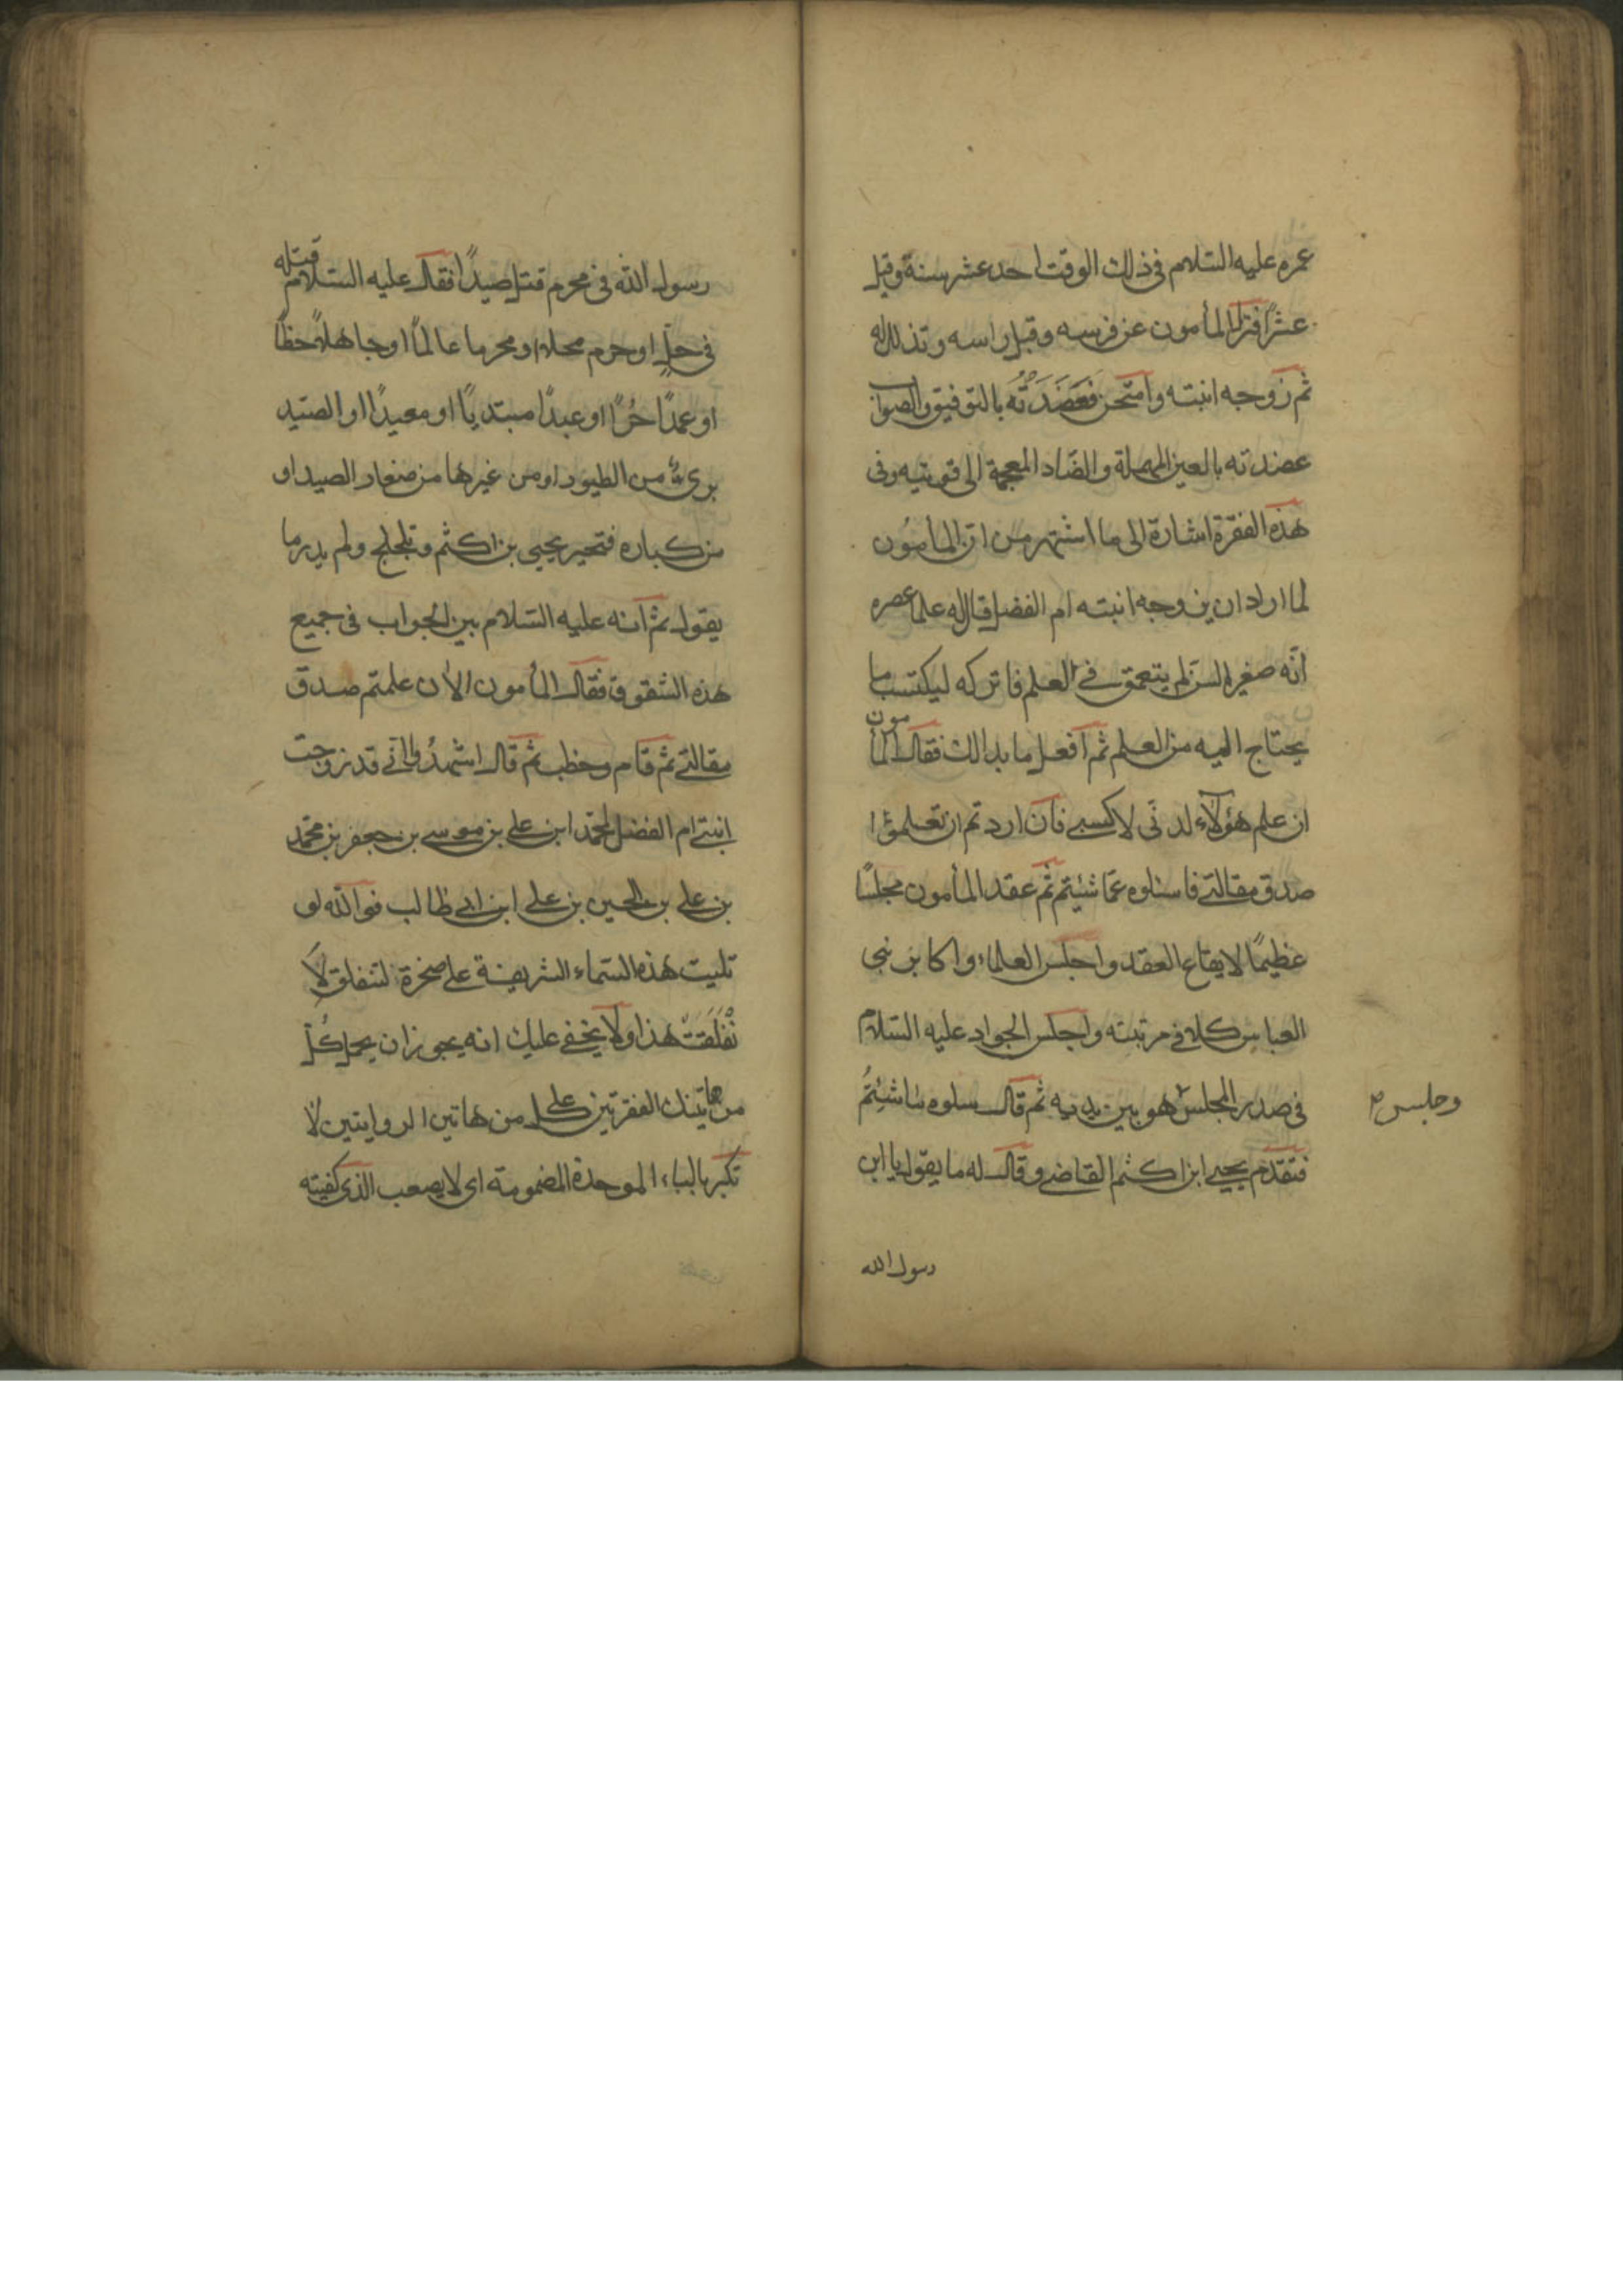 عمره عليه السلام في ذلك الوقت احد عشر سنة وقيل
عشرًا فنزل المأمون عن فرسه وقبل راسه وتذلل له
ثم زوجه ابنته وامتحن فعَضَدَتْهُ بالتوفيق والصواب
عضدته بالعين المهملة والضّاد المعجمة اى قويته وفى
هذه الفقرة اشارة الى ما اشتهر من ان المأمون
لما اراد ان يزوجه ابنته ام الفضل قال له علما عصره
انّه صغير السن لم يتعمق في العلم فاتركه ليكتسب ما
يحتاج اليه من العلم ثم افعل ما بدالك فقال المأمون
ان علم هؤلآء لدنّى لا كسبي فان اردتم ان تعلموا
صدق مقالتي فاسئلوه عمّا شئيتم ثم عقد المأمون مجلسًا
عظيمًا لايقاع العقد واجلس العلماء واكابر بنى
العباس كلا في مرتبته واجلس الجواد عليه السلام
في صدر المجلس هو بين يديه ثم قال سلوه ما شئِتُم
وجلس
فتقدّم يحيى ابن اكثم القاضي وقال له ما يقول يا ابن
رسول الله
رسول الله في محرم قتل صيدًا فقال عليه السلام قتله
في حلٍ او حرم محلا او محرما عالمًا او جاهلاً خطًا
او عمدًا حُرًا او عبدًا مبتديًا او معيدًا او الصيد
برىّ من الطيور او من غيرها من صغار الصيد او
من كباره فتحير يحيى بن اكثم وتلجلج ولم يدر ما
يقول ثم انه عليه السلام بين الجواب في جميع
هذه الشقوق فقال المأمون الان علمتم صدق
مقالتي ثم قام وخطب ثم قال اشهدُوا انّي قد زوجت
ابنتي ام الفضل لمحمّد ابن علي بن موسى بن جعفر بن محمّد
بن علي بن الحسين بن علي ابن ابي طالب فوالله لو
تليت هذه السماء الشريفة على صخرة لتنفلق لاَ
نْفَلَقَتْ هذا ولا يخفى عليك انه يجوز ان يحمل كُل
من هاتينك الفقرتين على كل من هاتين الروايتين لا
تكبر بالباء الموحدة المضمومة اى لا يصعب الذى كفيته